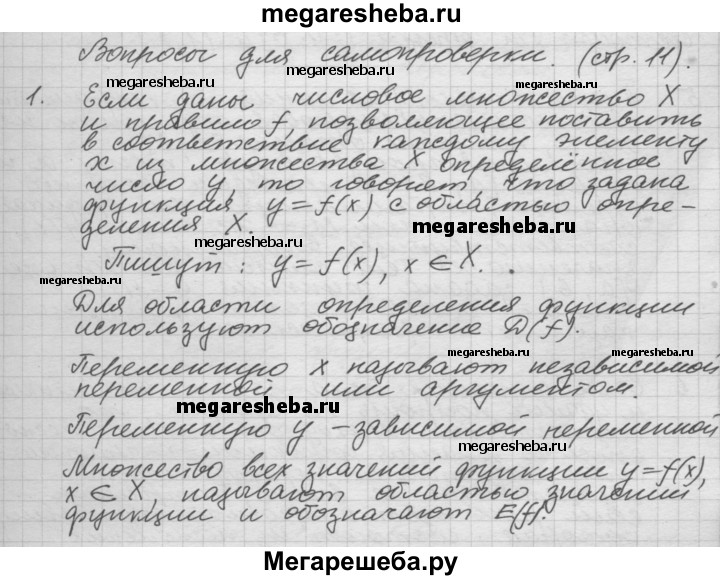 megaresheba.ru
Вопросы для самопроверки. (стр. 11).
megaresheba.ru
megaresheba.ru
megaresheba.ru
1. Если даны числовое множество X
и правило f, позволяющее поставить
megaresheba.ru
megaresheba.ru
в соответствие каждому элементу
x из множества X определённое
число y, то говорят, что задана
функция y=f(x) с областью опре-
megaresheba.ru
деления X.
megaresheba.ru
Пишут: y=f(x), x∈X.
megaresheba.ru
megaresheba.ru
Для области определения функции
используют обозначение D(f).
megaresheba.ru
megaresheba.ru
Переменную x называют независимой
переменной или аргументом.
megaresheba.ru
Переменную y – зависимой переменной
megaresheba.ru
Множество всех значений функции y=f(x),
x∈X, называют областью значений
megaresheba.ru
функции и обозначают E(f).
Мегарешеба.ру